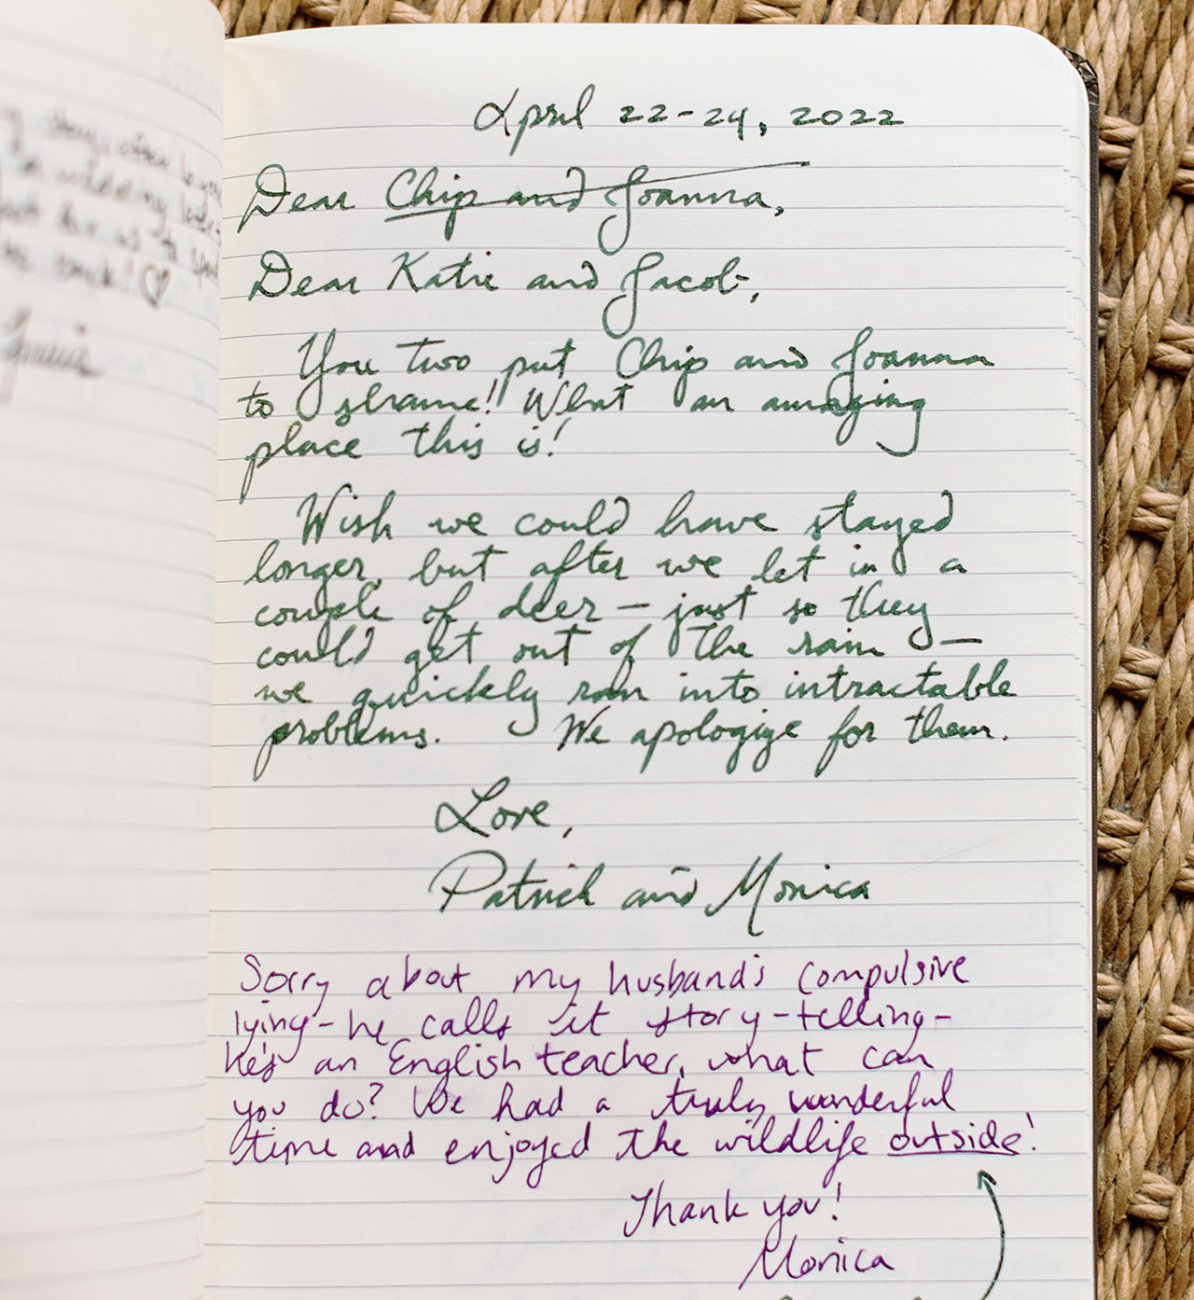 April 22-24, 2022
Dear Chip and Joanna,
Dear Katie and Jacob,
You two put Chip and Joanna
to shame! What an amazing
place this is!
Wish we could have stayed
longer, but after we let in a
couple of deer - just so they
could get out of the rain -
we quickly ran into intractable
problems. We apologize for them.
Love,
Patrick and Monica
Sorry about my husband's compulsive
lying - he calls it story-telling -
he's an English teacher, what can
you do? We had a truly wonderful
time and enjoyed the wildlife outside!
Thank you!
Monica